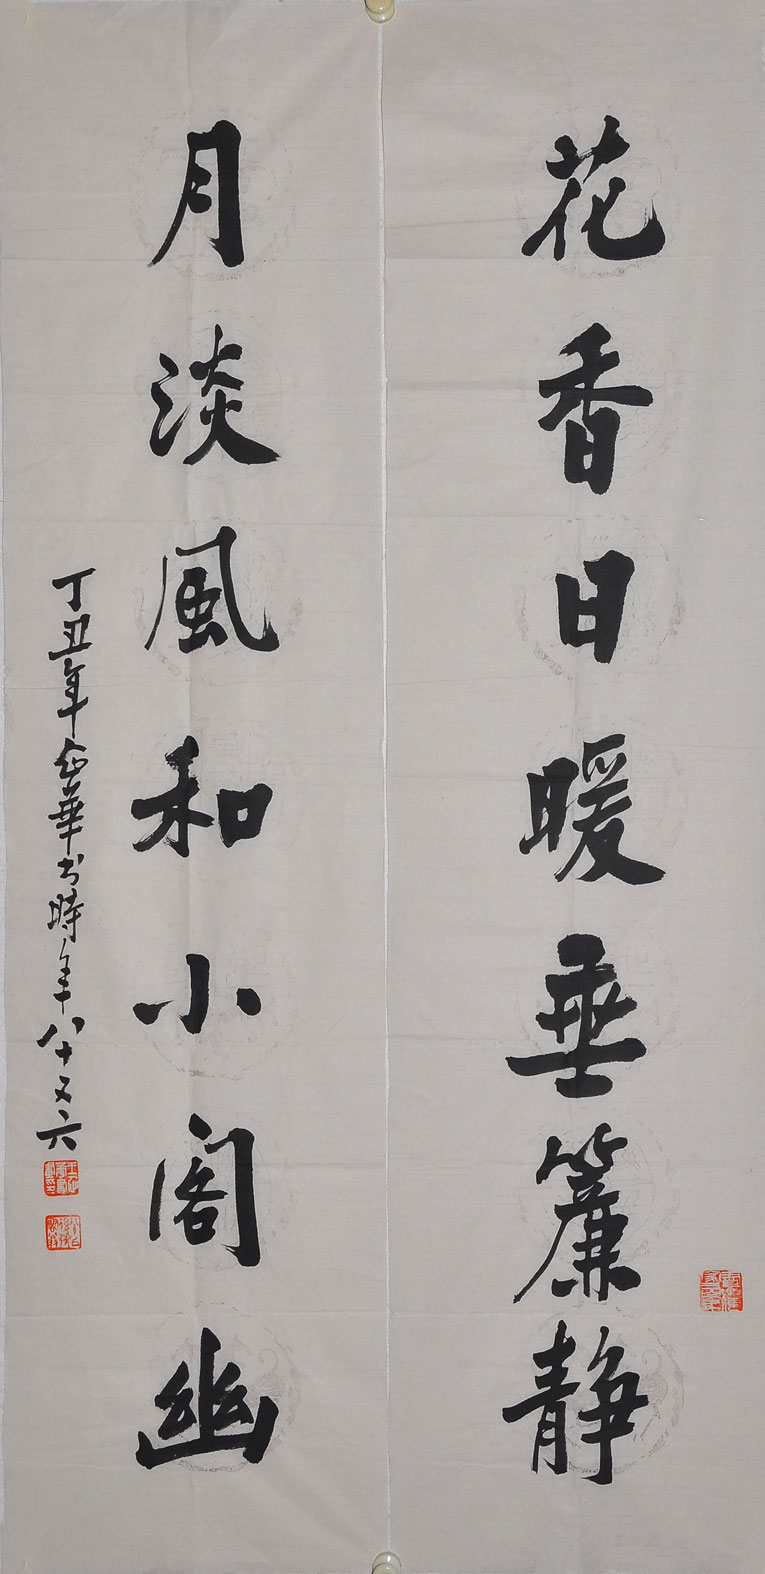 花香日暖垂簾静
月淡風和小閣幽
丁丑年企華书時年八十又六